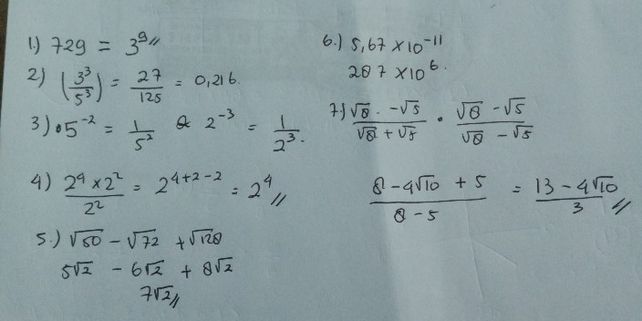 1.) 729 = 3⁹//
2) (3³/5³) = 27/125 = 0,216.
3) • 5⁻² = 1/5² & 2⁻³ = 1/2³.
4) 2⁴ × 2²/2² = 2⁴⁺²⁻² = 2⁴//
5.) √50 - √72 + √128
5√2 - 6√2 + 8√2
7√2//
6.) 5,67 × 10⁻¹¹
287 × 10⁶.
7) √8 - √5/√8 + √5 • √8 - √5/√8 - √5
8 - 4√10 + 5/8 - 5 = 13 - 4√10/3 //